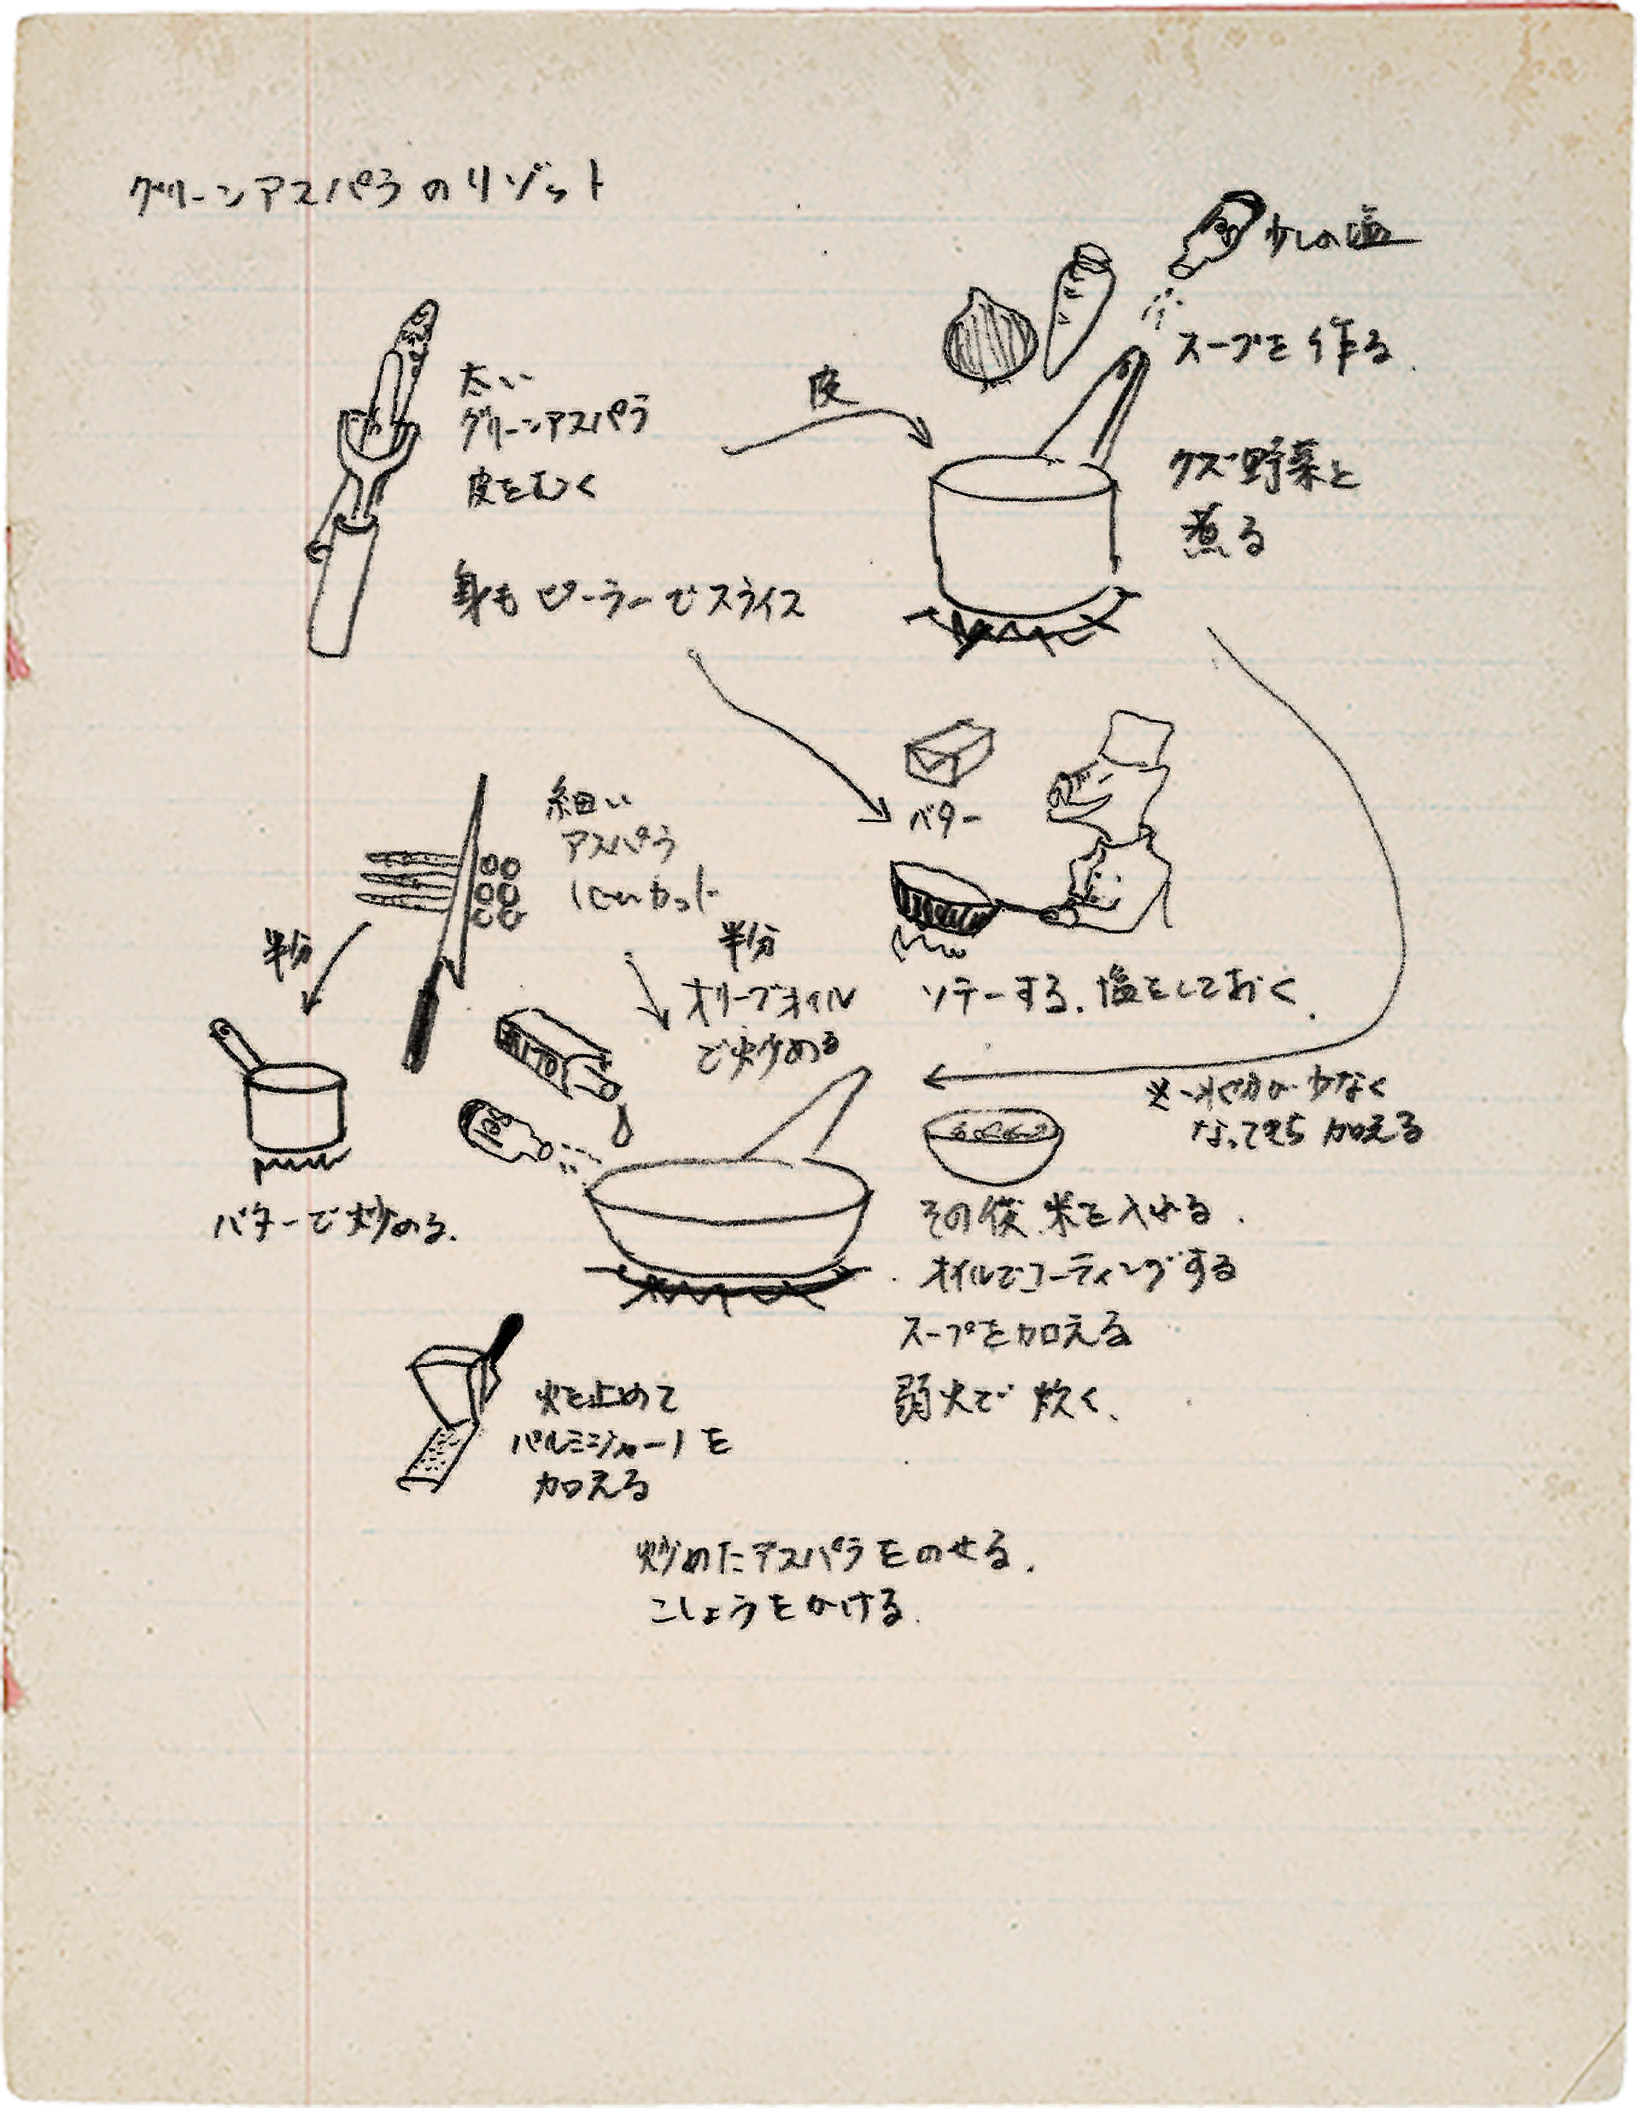 グリーンアスパラのリゾット
少しの塩
スープを作る.
太い
グリーンアスパラ
皮をむく
皮
クズ野菜と
煮る
身もピーラーでスライス
バター
ソテーする、塩をしておく.
細い
アスパラ
1cmカット
半分
半分
オリーブオイル
で炒める
バターで炒める.
水分が少なく
なってきたら加える
その後、米を入れる.
オイルでコーティングする
スープを加える
弱火で炊く、
火を止めて
パルミジャーノを
加える
炒めたアスパラをのせる.
こしょうをかける.